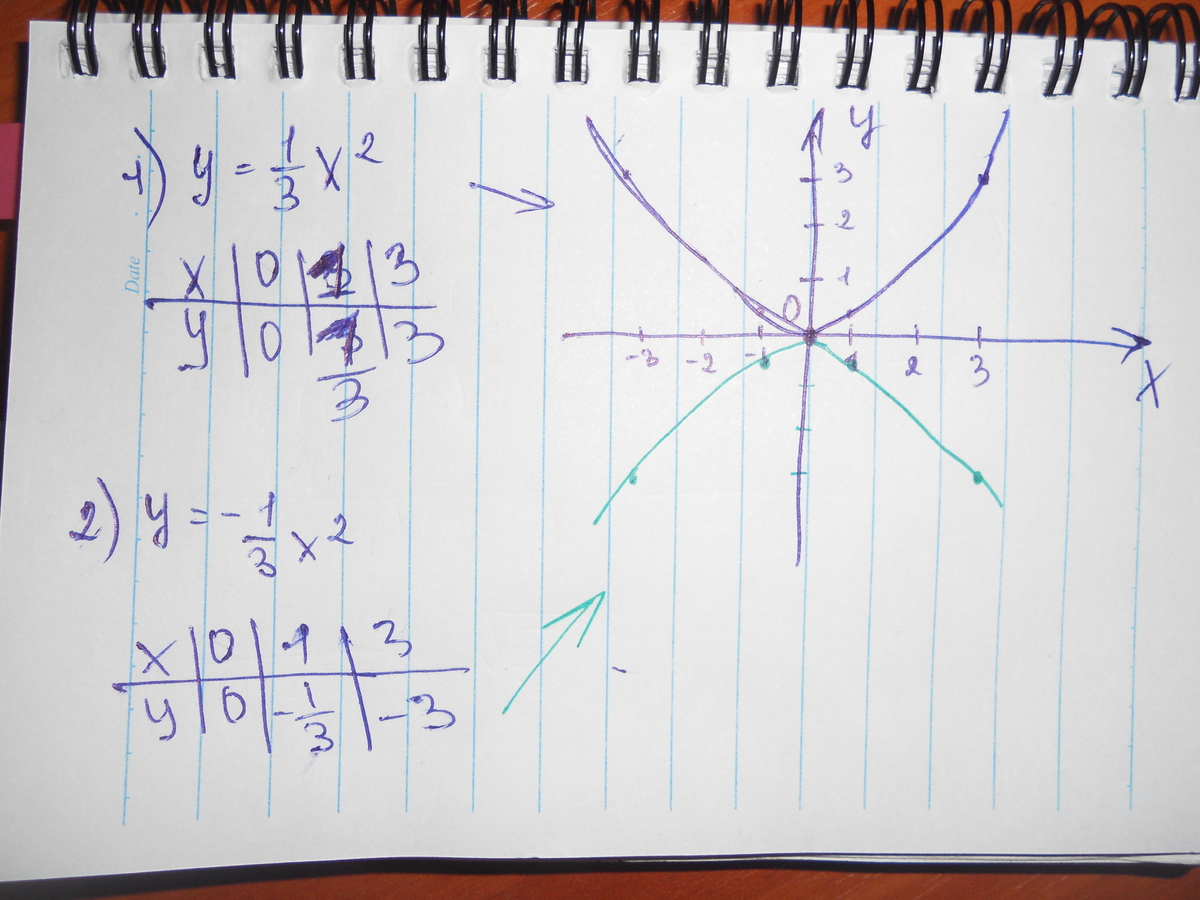 1) y = 1/3 x²
x | 0 | 1 | 3
y | 0 | 1/3 | 3
2) y = -1/3 x²
x | 0 | 1 | 3
y | 0 | -1/3 | -3
y
3
2
1
0
-3 -2 -1 1 2 3
x
Date